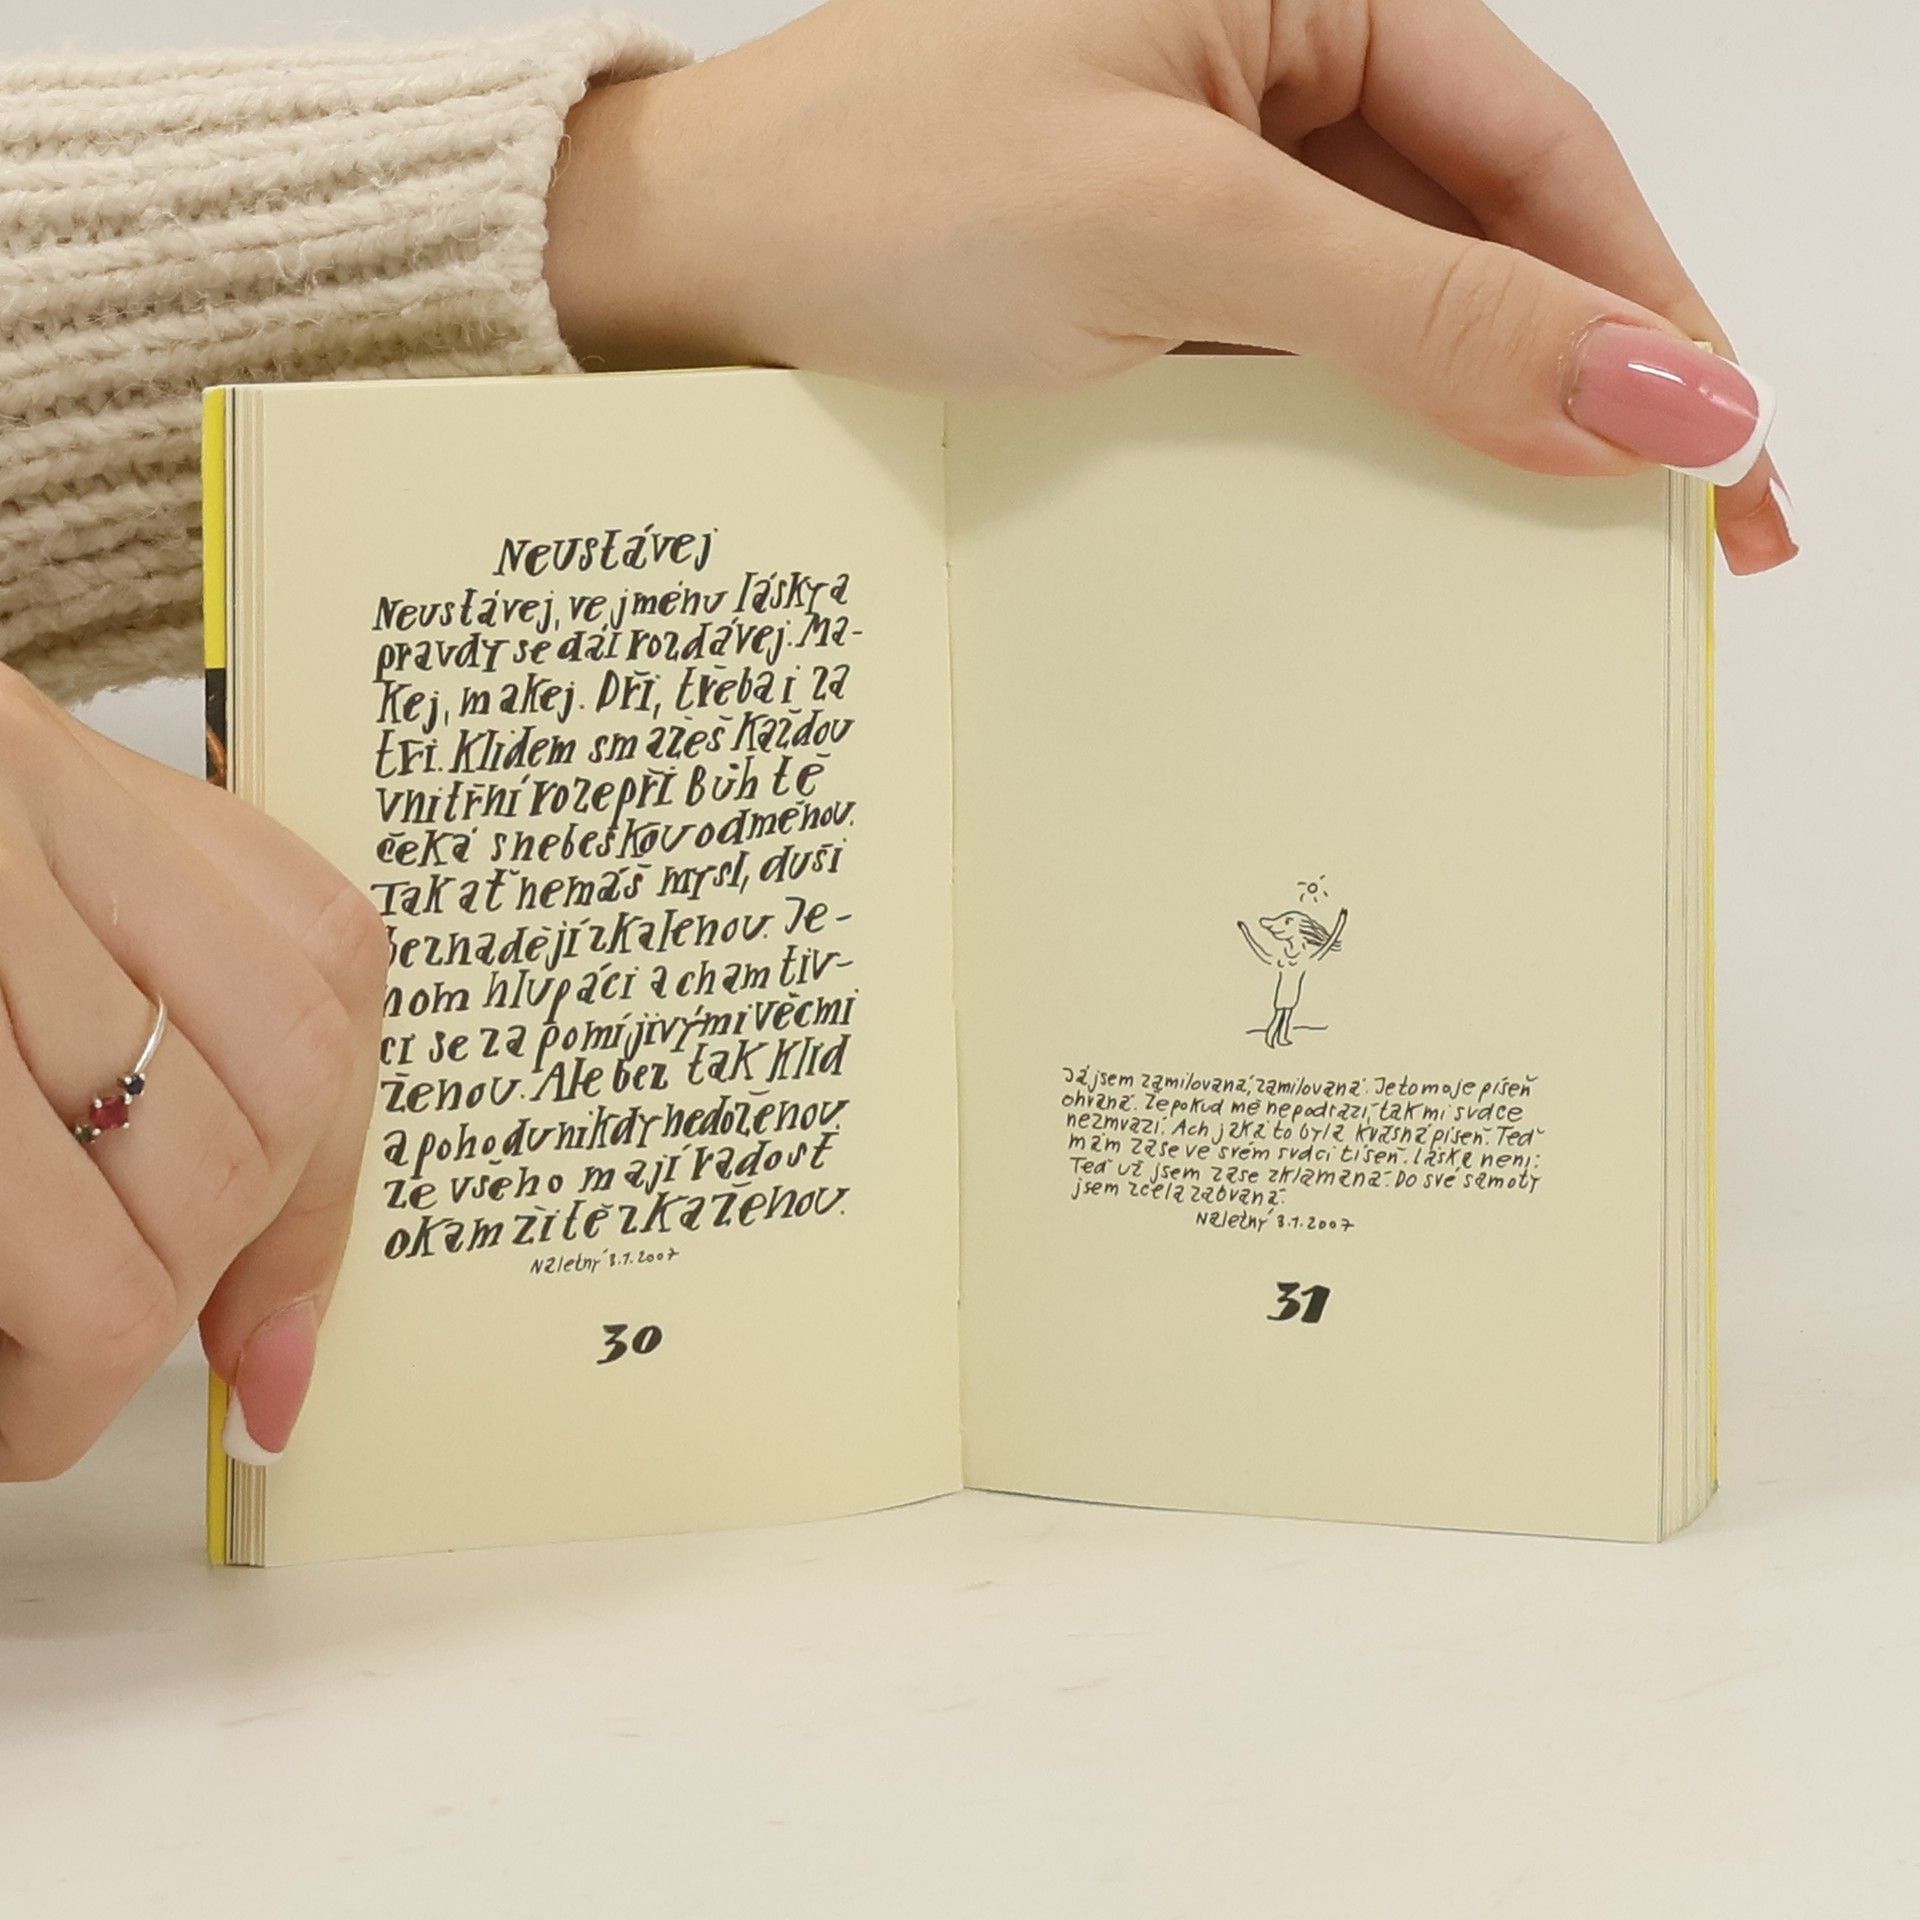 Neustávej
Neustávej, ve jménu lásky a
pravdy se dál rozdávej. Ma-
kej, makej. Dři, třeba i za
tři. Klidem smažeš každou
vnitřní rozepři Bůh tě
čeká s nebeskou odměnou.
Tak ať nemáš mysl, duši
beznadějí zkalenou. Je-
nom hlupáci a chamtiv-
ci se za pomíjivými věcmi
ženou. Ale bez tak klid
a pohodu nikdy nedoženou.
Ze všeho mají radost
okamžitě zkaženou.
Naletný 3.1.2007
30
Já jsem zamilovaná, zamilovaná. Je to moje píseň
ohraná. Že pokud mě nepodrazí, tak mi srdce
nezmrazí. Ach jaká to byla krásná píseň. Teď
mám zase ve svém srdci tíseň. Láska není.
Teď už jsem zase zklamaná. Do své samoty
jsem zcela zabraná.
Naletný 3.1.2007
31